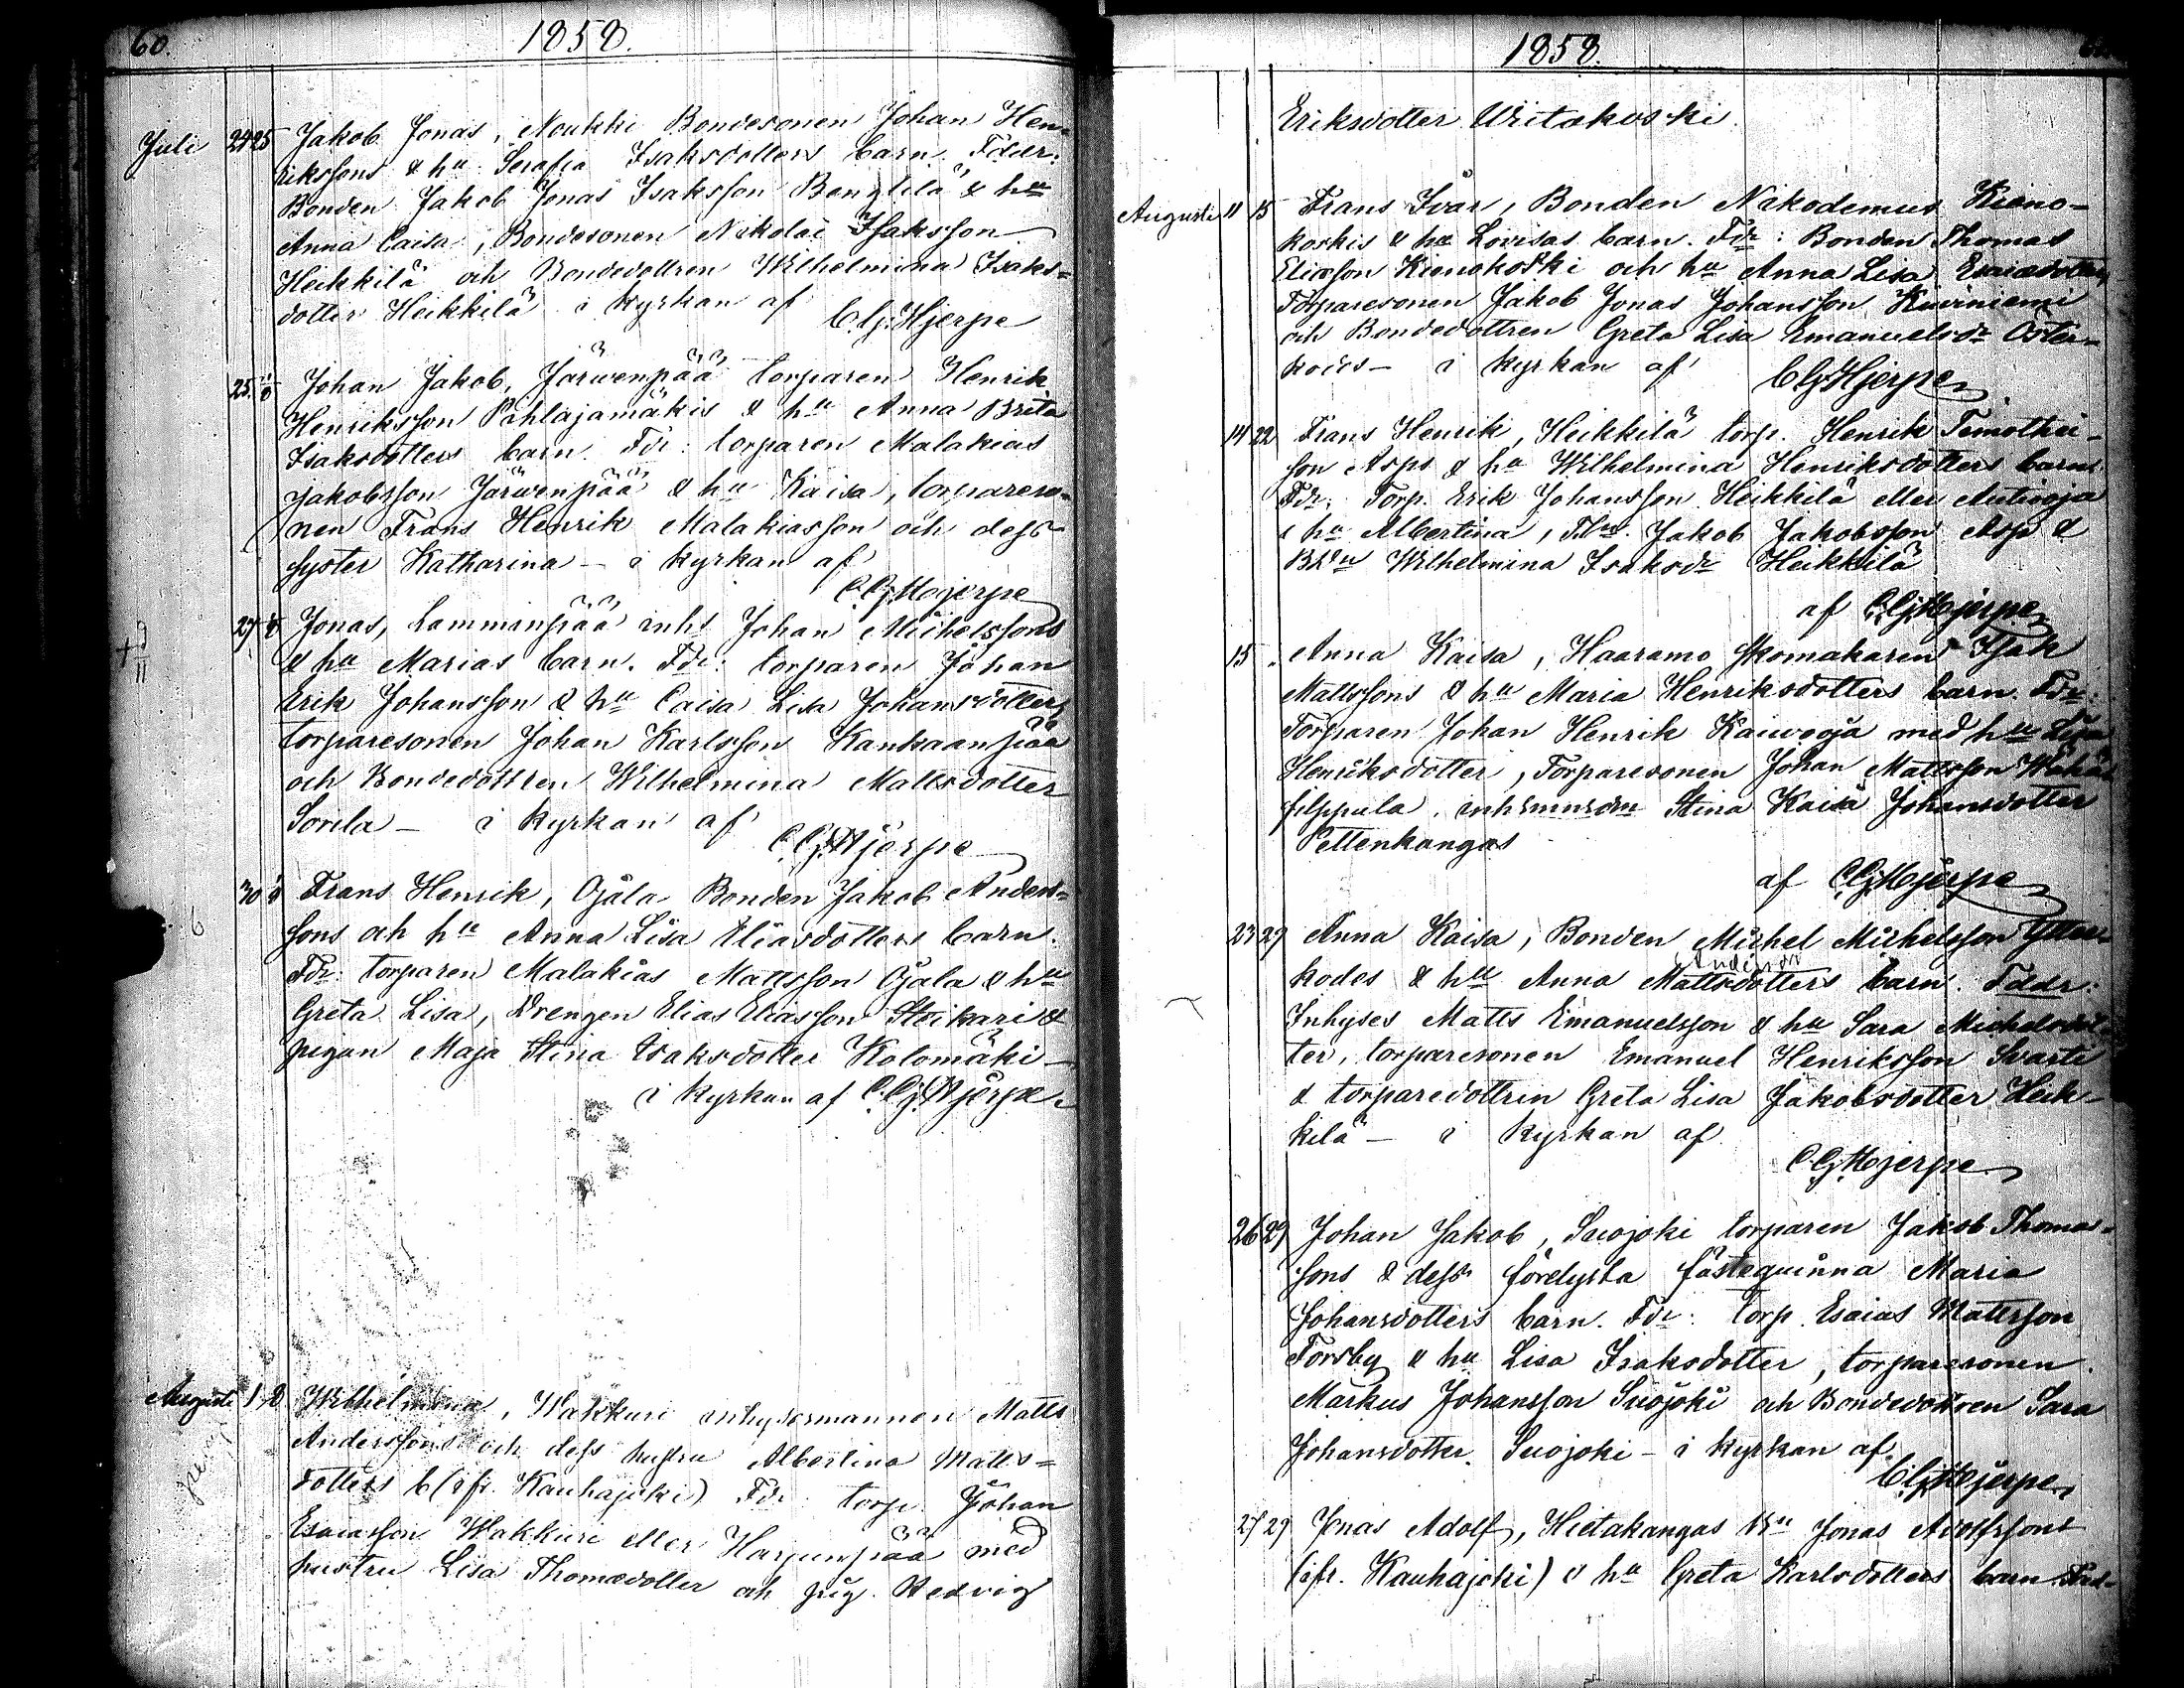 60.
1858.
Juli 24 25 Jakob Jonas, Noukki Bondesonen Johan Hen-
rikssons & hu Serafia Isaksdotters barn. Fddr:
Bonden Jakob Jonas Isaksson Bengtilä & hu
Anna Caisa, Bondesonen Nikolai Isaksson
Heikkilä och Bondedottren Wilhelmina Isaks-
dotter Heikkilä i kyrkan af
C.G.Hjerpe
25. 1/8 Johan Jakob, Järwenpää torparen Henrik
Henriksson Pahlajamäkis & hu Anna Brita
Isaksdotters barn. Fdr: torparen Malakias
Jakobsson Järwenpää & hu Kaisa, torpareso-
nen Frans Henrik Malakiasson och dess
syster Katharina - i kyrkan af
C.G.Hjerpe
27 1/8 Jonas, Lamminpää inhs Johan Michelssons
& hu Marias barn. Fdr: torparen Johan
Erik Johansson & hu Caisa Lisa Johansdotter,
torparesonen Johan Karlsson Kankaanpää
och Bondedottren Wilhelmina Mattsdotter
Sorila - i kyrkan af
C.G.Hjerpe
30 1/8 Frans Henrik, Ojala Bonden Jakob Anders-
sons och hu Anna Lisa Eliasdotters barn.
Fdr: torparen Malakias Mattsson Ojala & hu
Greta Lisa, Drengen Elias Eliasson Stoikari &
pigan Maja Stina Isaksdotter Kolomäki -
i kyrkan af C.G.Hjerpe.
Augusti 1 8 Wilhelmina, Wakkuri inhysesmannen Matts
Anderssons och dess hustru Albertina Matts-
dotters b (ifr. Kauhajoki) Fdr: torp. Johan
Esaiasson Wakkuri eller Harjunpää med
hustru Lisa Thomasdotter och pig. Hedvig
1858.
Eriksdotter Uitakoski.
Augusti 11 15 Frans Ivar, Bonden Nikodemus Kieno-
koskis & hu Lovisas barn. Fdr: Bonden Thomas
Eliasson Kienokoski och hu Anna Lisa Esaiædotter,
Torparesonen Jakob Jonas Johansson Kiviniemi
och Bondedottren Greta Lisa Emanuelsdr Öster-
kods - i kyrkan af C.G.Hjerpe
14 22 Frans Henrik, Heikkilä torp. Henrik Timothei-
son Asps & hu Wilhelmina Henriksdotters barn.
Fdr: Torp. Erik Johansson Heikkilä eller Antiioja
& hu Albertina, Jakob Jakobsson Asp &
Wilhelmina Isaksdr Heikkilä
af C.G.Hjerpe
15 Anna Kaisa, Haaramo skomakaren Isak
Mattssons & hu Maria Henriksdotters barn. Fdr:
Torparen Johan Henrik Kaiwooja med hu Lisa
Henriksdotter, Torparesonen Johan Mattsson Wähä-
filppula, Stina Kaisa Johansdotter
Pettenkangas
af C.G.Hjerpe
23 29 Anna Kaisa, Bonden Michel Michelsson Ytter-
kodes & hu Anna Mattsdotters barn. Fddr:
Andersdr
Inhyses Matts Emanuelsson & hu Sara Michelsdot-
ter, torparesonen Emanuel Henriksson Svarti
& torparedottren Greta Lisa Jakobsdotter Heik-
kilä - i kyrkan af
C.G.Hjerpe
26 29 Johan Jakob, Suojoki torparen Jakob Thomas-
sons & dess förelysta fästeqvinna Maria
Johansdotters barn. Fdr: torp. Esaias Mattsson
Forsby & hu Lisa Isaksdotter, torparesonen
Markus Johansson Suojoki och Bondedottren Sara
Johansdotter Suojoki - i kyrkan af
C.G.Hjerpe
27 29 Jonas Adolf, Hietakangas Jonas Adolfssons
(ifr. Kauhajoki) & hu Greta Karlsdotters barn Fad-